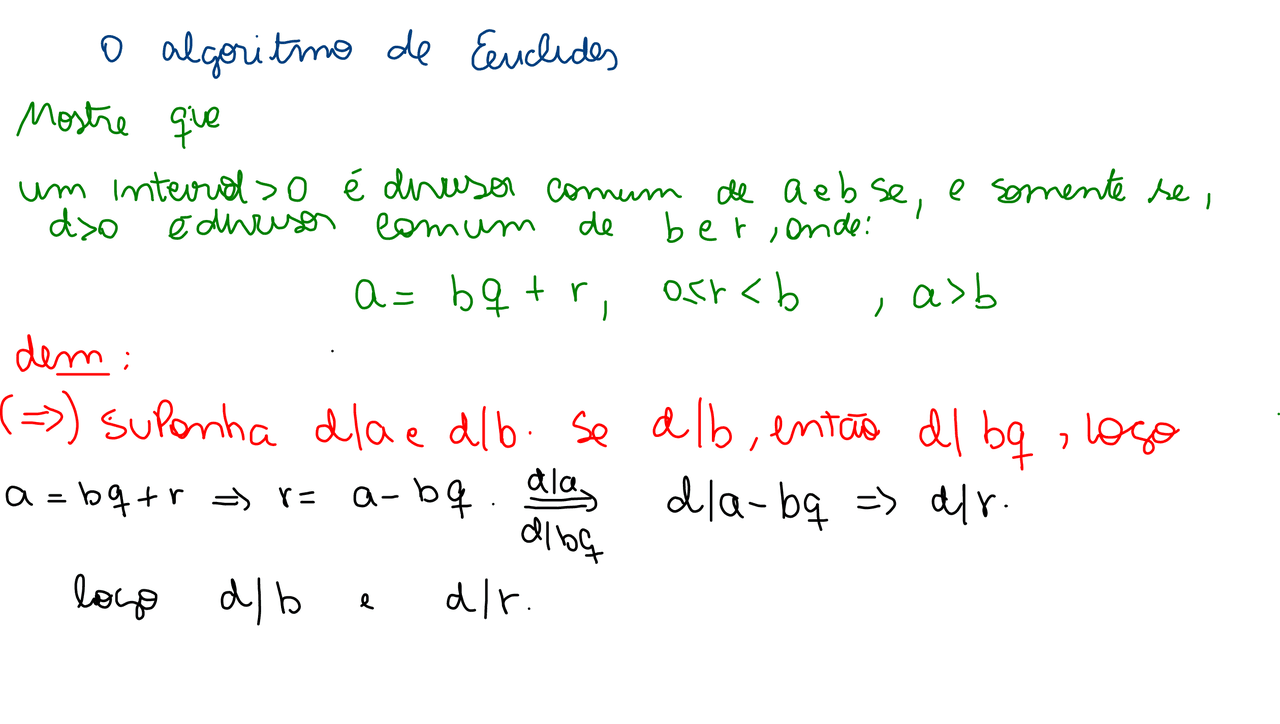 O algoritmo de Euclides
Mostre que
um inteiro d > 0 é divisor comum de a e b se, e somente se,
d>0 é divisor comum de b e r, onde:
a = bq + r, 0≤r < b , a > b
dem:
(⇒) Suponha d|a e d|b. Se d|b, então d|bq, logo
d|a
a = bq + r ⇒ r = a - bq. ⇒ d|a - bq ⇒ d|r.
d|bq
logo d|b e d|r.